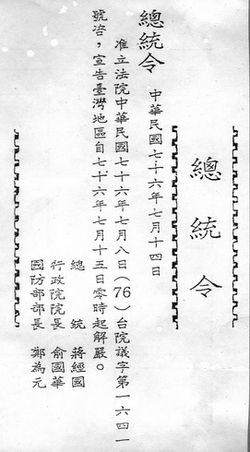 總統令
總統令
中華民國七十六年七月十四日
准立法院中華民國七十六年七月八日(76)台院議字第一六四一
號咨，宣告臺灣地區自七十六年七月十五日零時起解嚴。
總統 蔣經國
行政院院長 俞國華
國防部部長 鄭為元